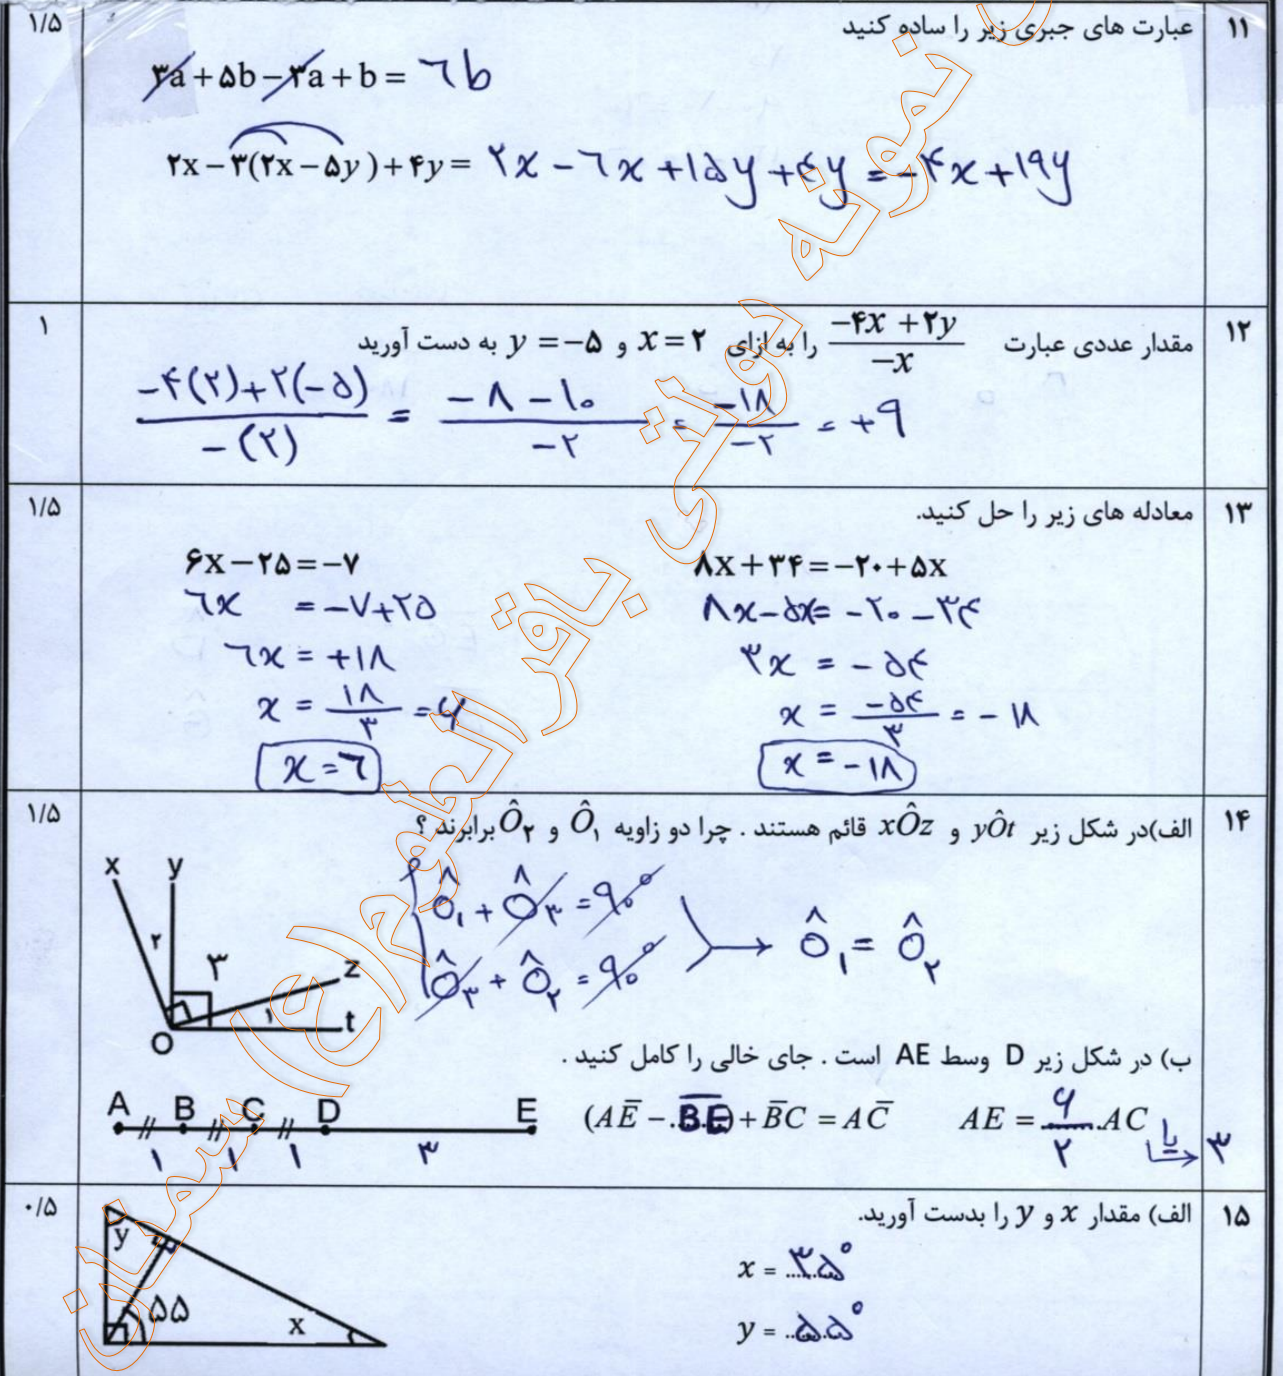 ۱۱ عبارت های جبری زیر را ساده کنید ۱/۵
۳a + ۵b − ۳a + b = ۶b
۲x − ۳(۲x − ۵y) + ۴y = ۲x − ۶x + ۱۵y + ۴y = −۴x + ۱۹y
۱۲ مقدار عددی عبارت (−۴x + ۲y)/(−x) را به ازای x = ۲ و y = −۵ به دست آورید ۱
(−۴(۲)+۲(−۵))/(−(۲)) = (−۸ − ۱۰)/(−۲) = (−۱۸)/(−۲) = +۹
۱۳ معادله های زیر را حل کنید. ۱/۵
۸x + ۳۴ = −۲۰ + ۵x
۸x − ۵x = −۲۰ − ۳۴
۳x = −۵۴
x = −۵۴/۳ = −۱۸
x = −۱۸
۶x − ۲۵ = −۷
۶x = −۷ + ۲۵
۶x = +۱۸
x = ۱۸/۳ = ۶
x = ۶
۱۴ الف)در شکل زیر yÔt و xÔz قائم هستند . چرا دو زاویه Ô۱ و Ô۲ برابرند ؟ ۱/۵
x y z t O
۱ ۲ ۳
Ô۱ + Ô۳ = ۹۰°
Ô۳ + Ô۲ = ۹۰°
Ô۱ = Ô۲
ب) در شکل زیر D وسط AE است . جای خالی را کامل کنید .
A B C D E
۱ ۱ ۱ ۳
(AE − BE) + BC = AC
AE = ۶/۲ AC یا ۳
۱۵ الف) مقدار x و y را بدست آورید. ۰/۵
y
۵۵
x
x = ۳۵°
y = ۵۵°
نمونه دولتی باقر العلوم(ع) سمنان